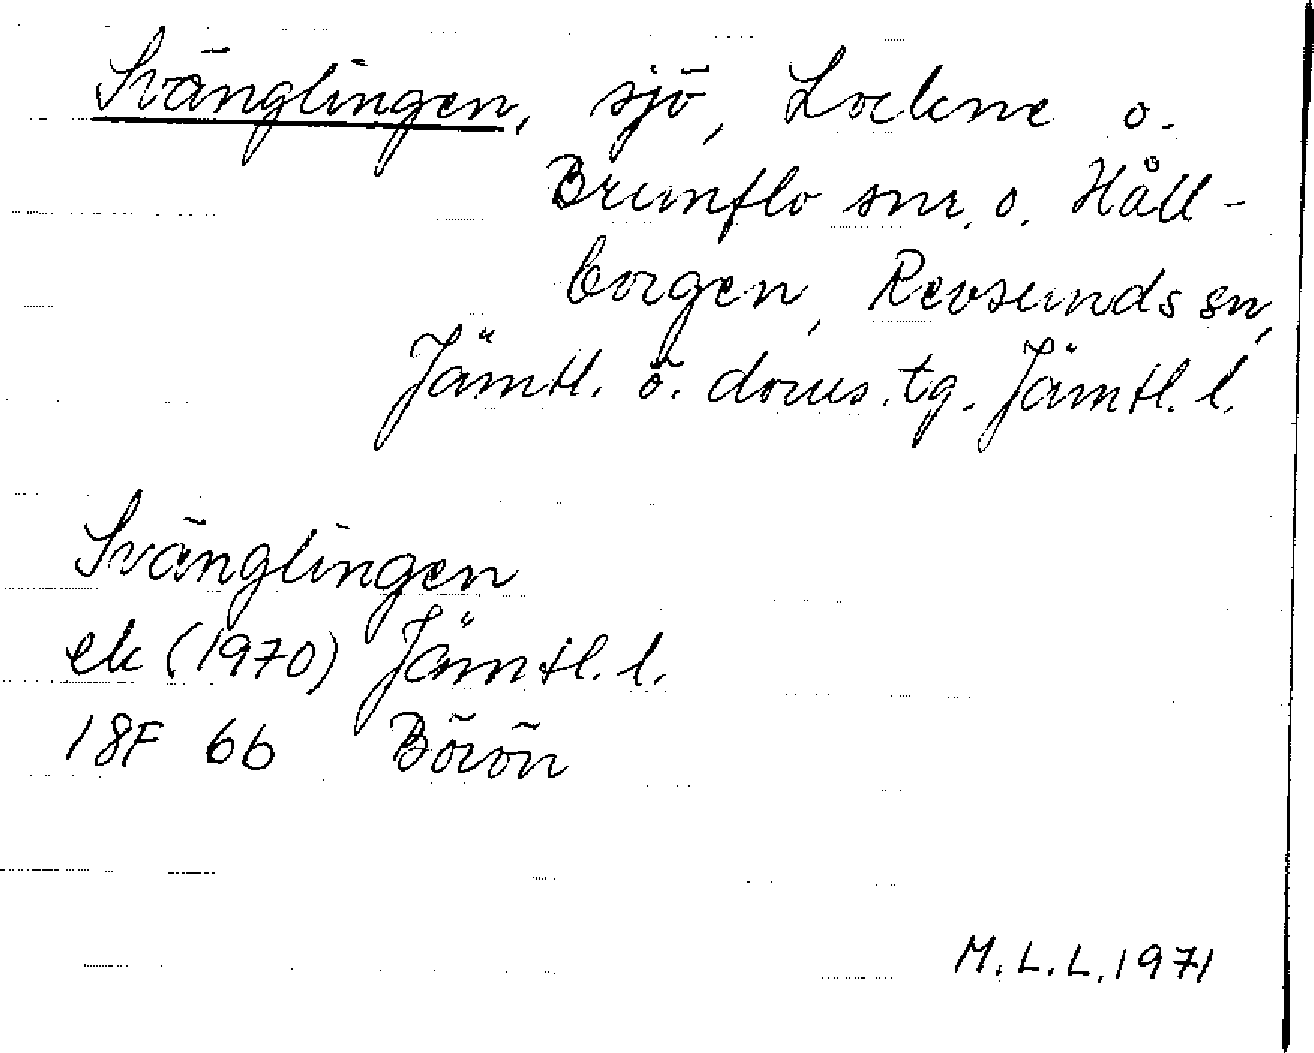 Svänglingen, sjö, Lockne o.
Brunflo snr. o. Håll-
borgen, Revsunds sn,
Jämtl. ö. doms. tg. Jämtl. l.
Svänglingen
ek (1970) Jämtl. l.
18F 6b Börön
M.L.L. 1971